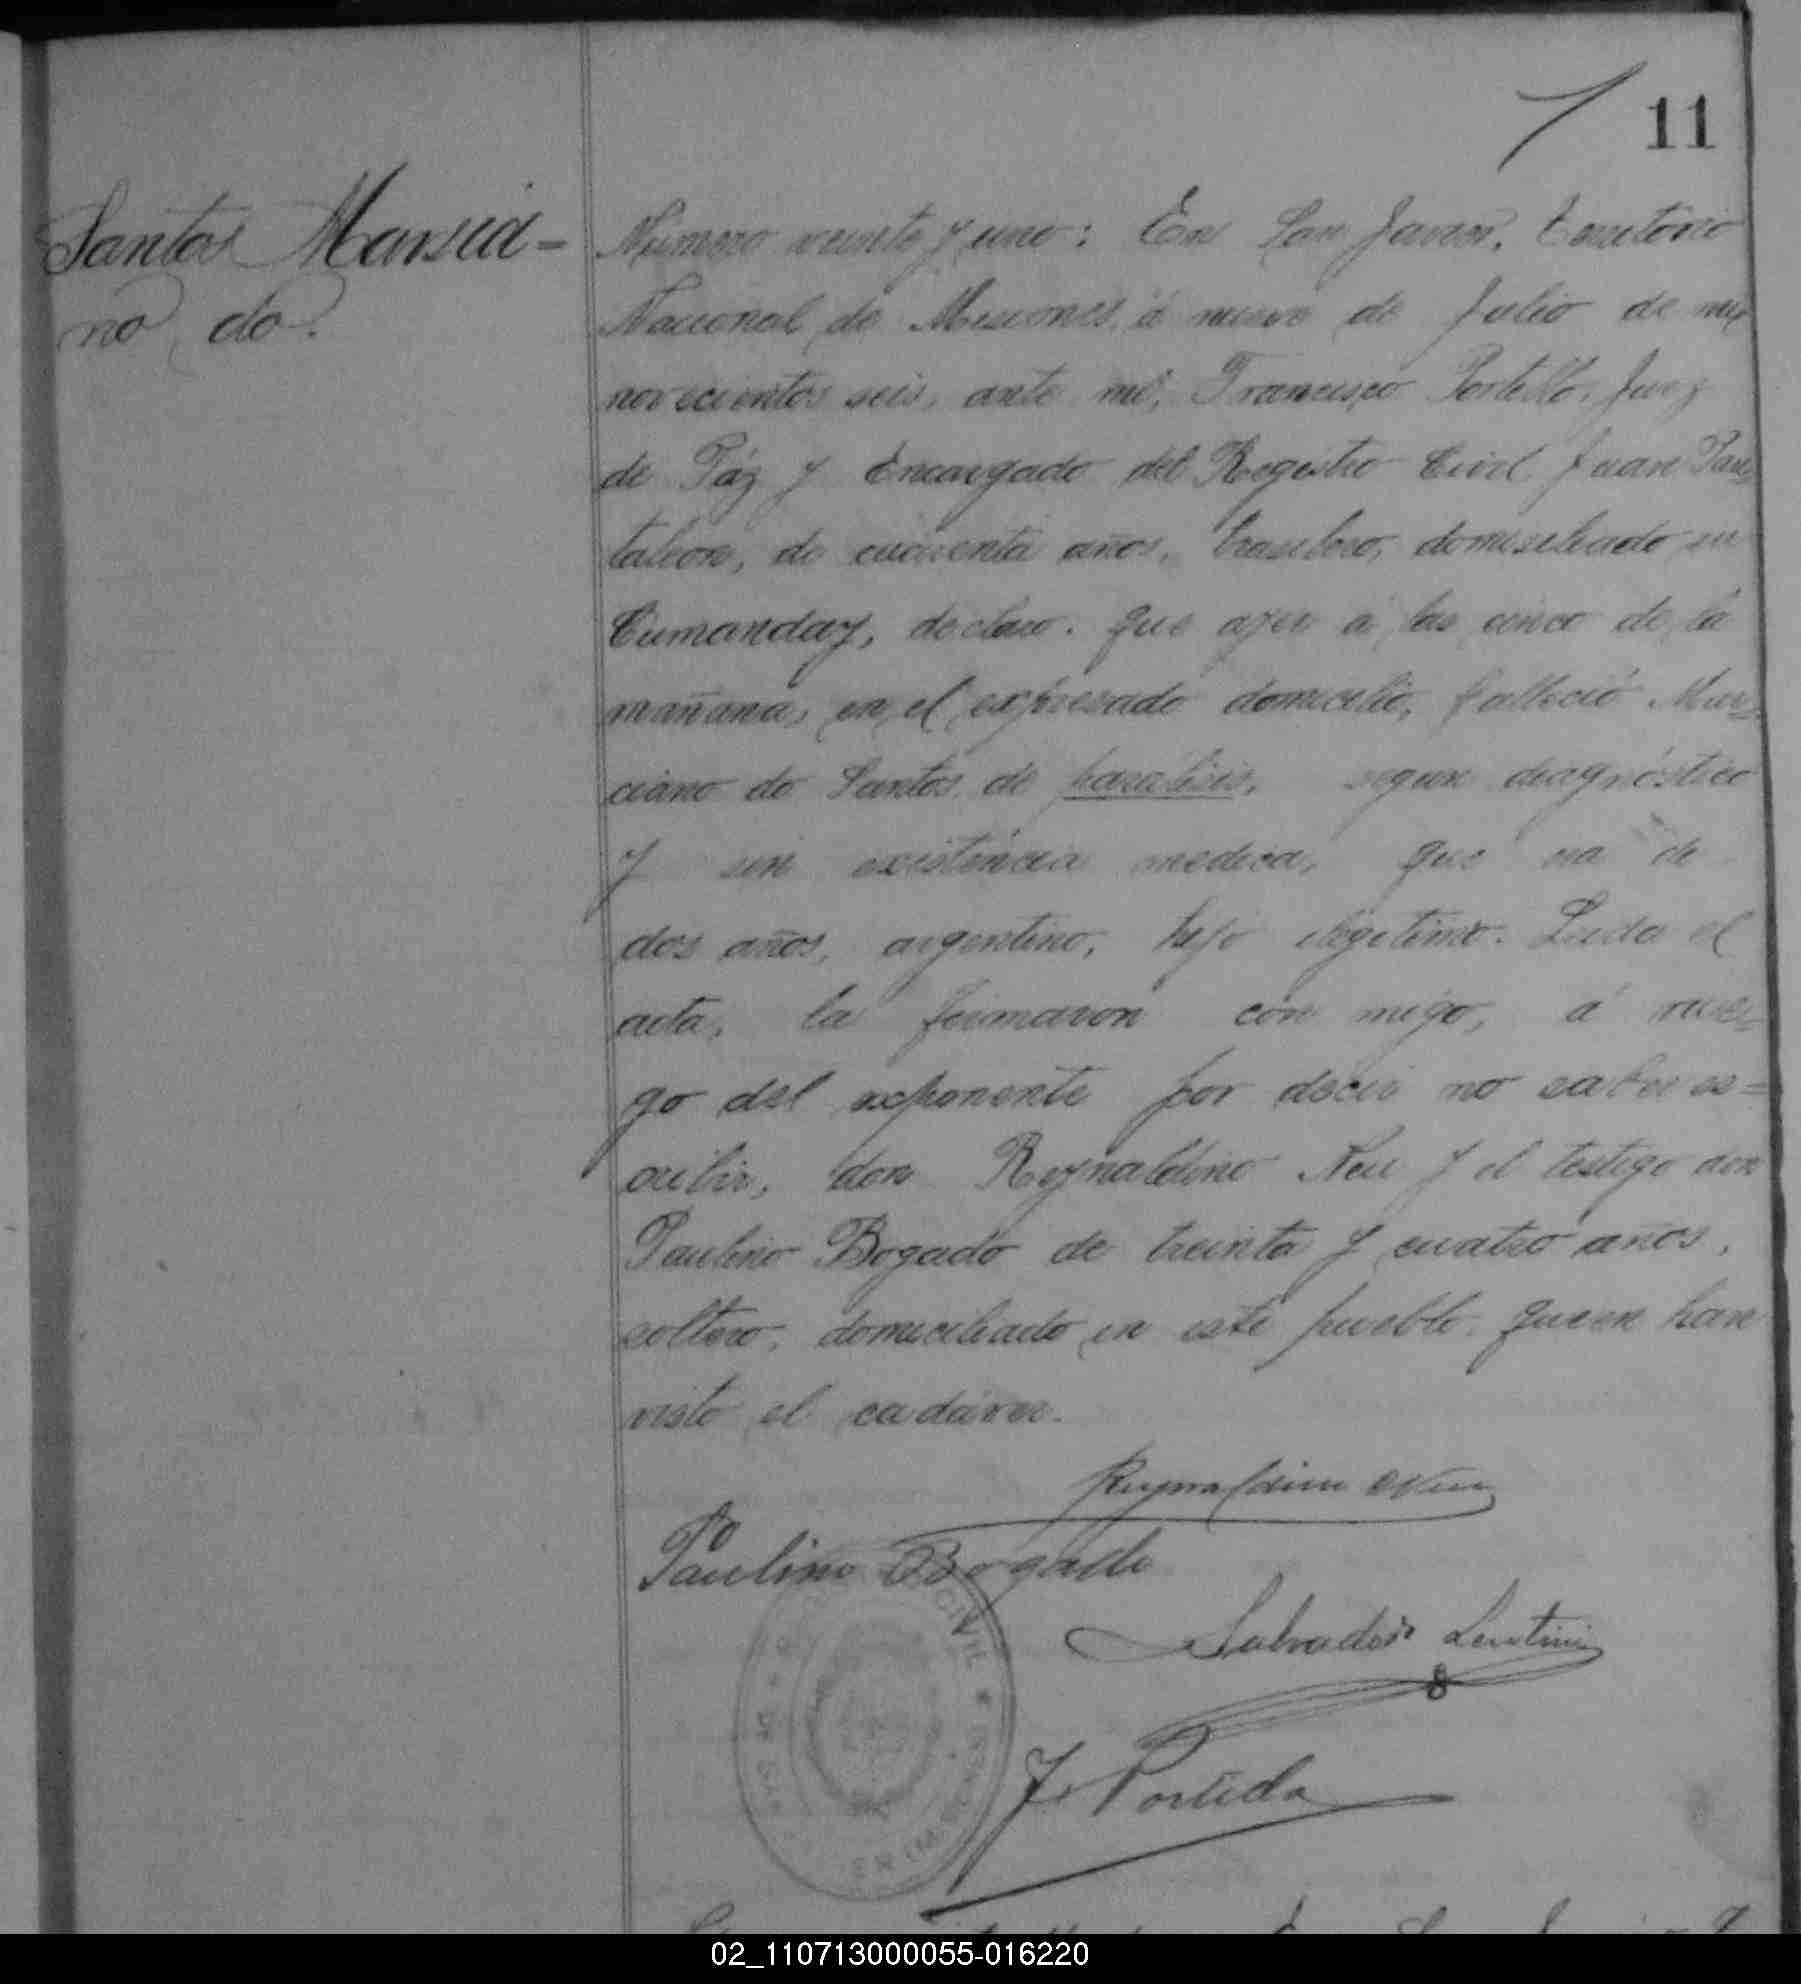 11
Santos Marcia-
no do.
Número veinte y uno: En San Javier, Territorio
Nacional de Misiones, á nueve de Julio de mil
novecientos seis, ante mi, Francisco Portillo, Juez
de Páz y Encargado del Registro Civil Juan Pan-
taleon, de cincuenta años, brasilero, domiciliado en
Cumanday, declaro. que ayer á las cinco de la
mañana, en el expresado domicilio, falleció Mar-
ciano do Santos de paralisis, segun diagnóstico
y sin existencia medica, que era de
dos años, argentino, hijo ilegitimo. Leida el
acta, la firmaron con migo, á rue-
go del exponente por decir no saber es-
cribir, don Reynaldino Neu y el testigo don
Paulino Bogado de treinta y cuatro años,
soltero, domiciliado en este pueblo quien han
visto el cadáver.
Reynaldino Neu
Paulino Bogado
CIVIL
Salvador Lentini
F. Portillo
02_110713000055-016220